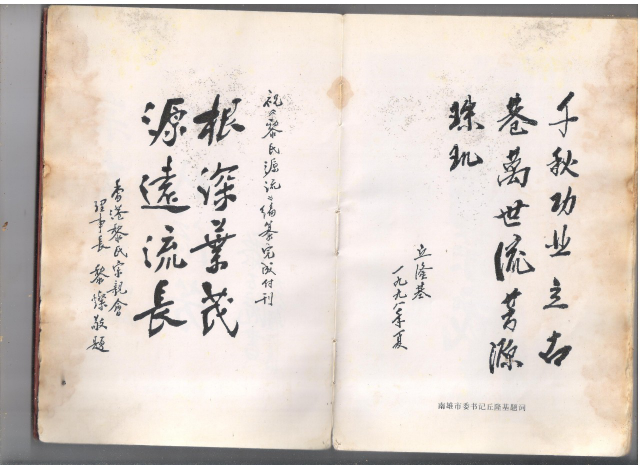 千秋功业立古
巷萬世流芳源
珠玑
丘隆基
一九九八年夏
南雄市委书记丘隆基题词
祝《黎氏源流》编纂完成付刊
根深葉茂
源遠流長
香港黎氏宗親會
理事長 黎燦敬題